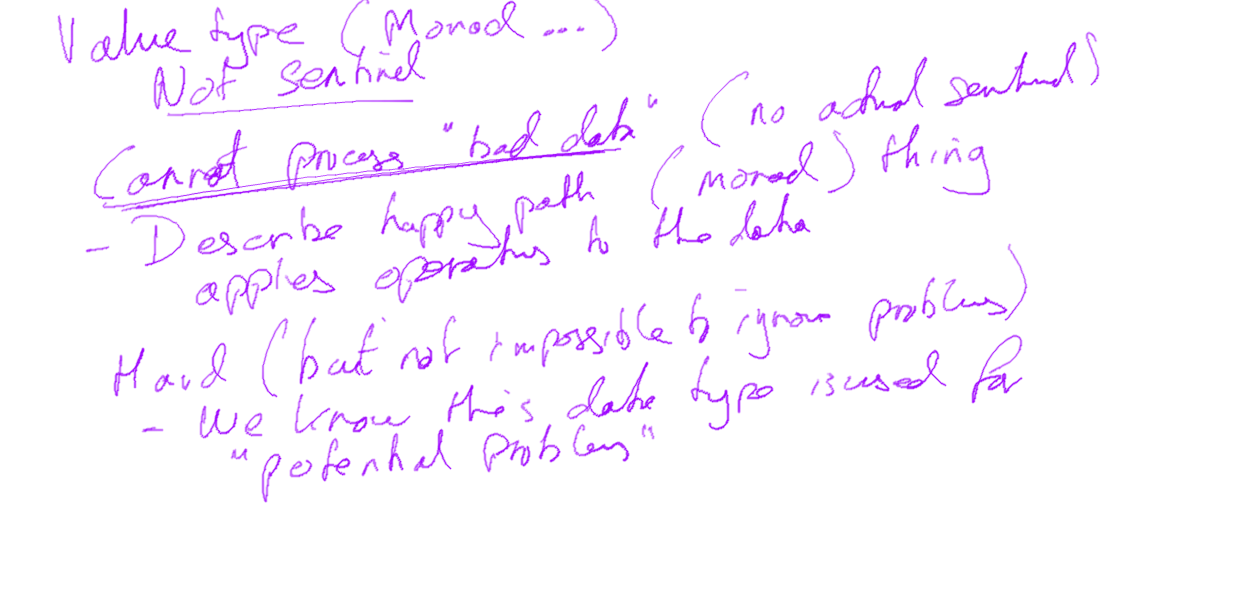 Value type (Monad ...)
Not sentinel
Cannot process "bad data" (no actual sentinel)
- Describe happy path (monad) thing
applies operations to the data
Hard (but not impossible to ignore problems)
- We know this data type is used for
"potential problems"